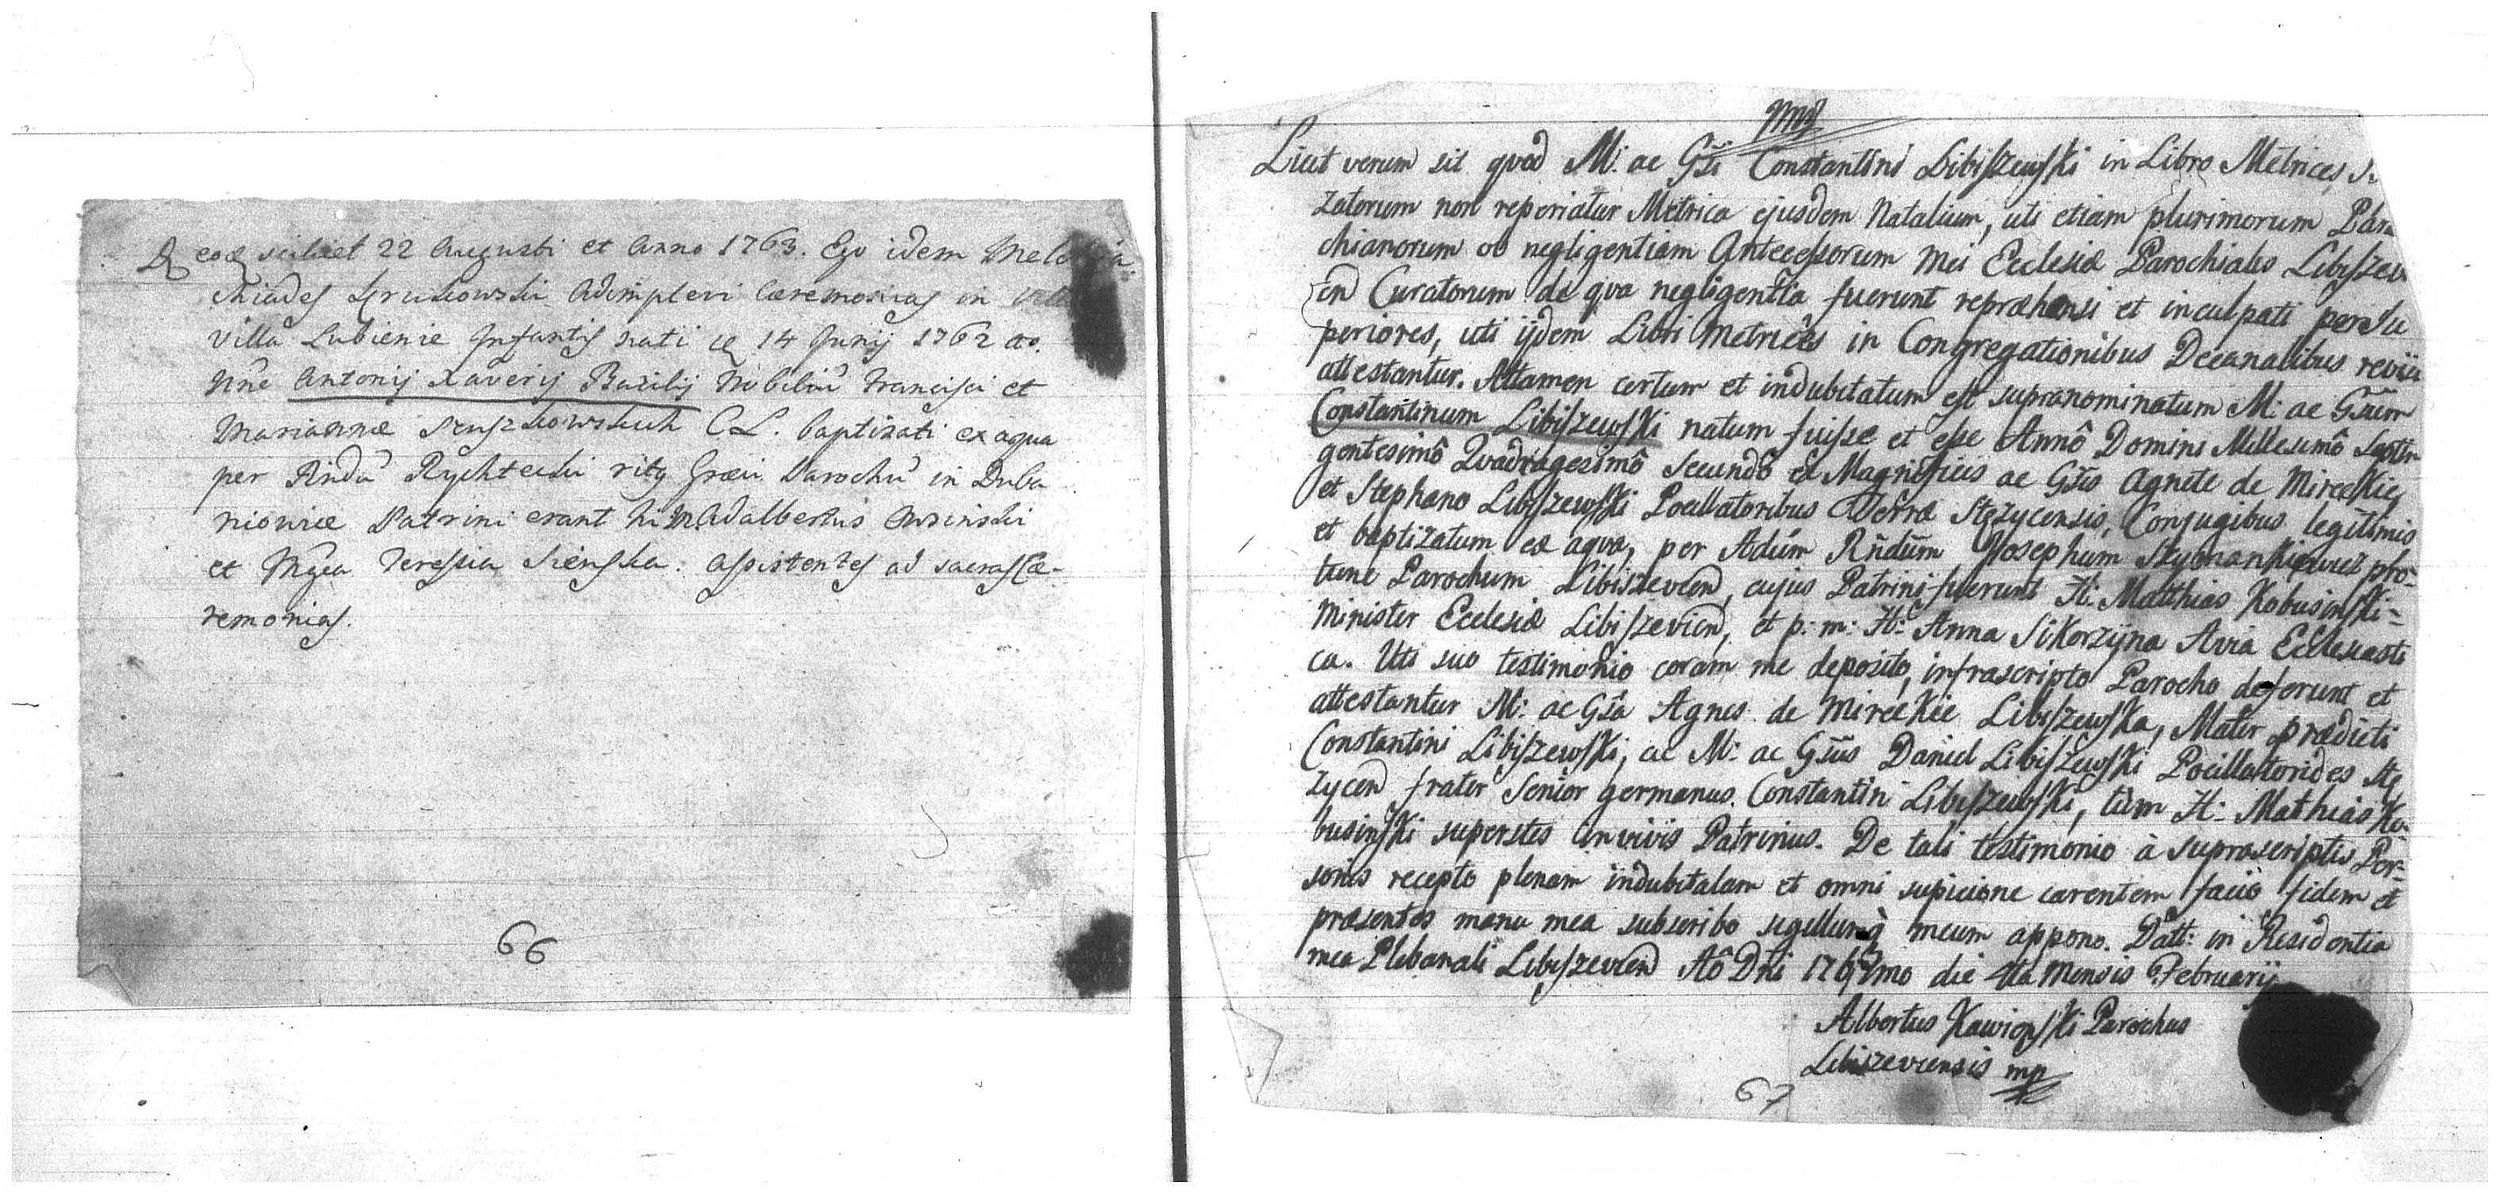 eodem scilicet 22 Augusti et Anno 1763. Ego idem Melch
chiades Grutkowski Adimplevi Cæremonias in
villa Lubienie Infantis nati 14 Junij 1762 ao.
Nñe Antonij Xaverij Bazilij Nobiliũ Francisci et
Mariannæ C L. baptizati ex aqua
per Rndũ Rychtecki ritq Græci Parochũ in Duba
niowice Patrini erant Adalbertus
et Mgca Teressia Sienska: assistentes ad sacras Cæ-
remonias.
66
mp
Licet verum sit quod M: ac Gsi Constantini Libiszewski in Libro Metrices
zatorum non reperiatur Metrica ejusdem Natalium, uti etiam plurimorum Paro
chianorum ob negligentiam Antecessorum mei Ecclesiæ Parochialis Libiszew
en Curatorum de qva negligentia fuerunt repræhensi et inculpati per Su
periores, uti ijdem Libri Metrices in Congregationibus Decanalibus revisi
attestantur. Attamen certum et indubitatum est supranominatum M: ac Gsum
Constantinum Libiszewski natum fuisse et esse Annô Domini Millesimô Septin
gentesimô Qvadragesimô secundô ex Magnificis ac Gsis Agnete de Mireckie
et Stephano Libiszewski Pocillatoribus Terræ Stęzycensis, Conjugibus legitimis
et baptizatum ex aqva, per Adũm Rñdũm Josephum pro-
tunc Parochum Libiszevien, cujus Patrini fuerunt H: Matthias Kobusinski-
Minister Ecclesiæ Libiszevien, et p: m: H: Anna Sikorzyna Avia Ecclesiasti
ca. Uti suo testimonio coram me deposito, infrascripto Parocho deferunt et
attestantur M: ac Gsa Agnes de Mireckie Libiszewska, Mater prædicti
Constantini Libiszewski, ac M: ac Gsus Daniel Libiszewski Pocillatorides Stę
zycen frater Senior germanus Constantini Libiszewski, tùm H: Mathias Ko
businski superstes in vivis Patrinus. De tali testimonio à suprascriptis Per-
sonis recepto plenam indubitatam et omni supicione carentem facio fidem et
præsentes manu mea subscribo sigillumq̀ meum appono. Datt: in Residentia
mea Plebanali Libiszevien Aô Dni 1767mo die 4ta Mensis Februarij
Albertus Kawionski Parochus
Libiszeviensis mp
67